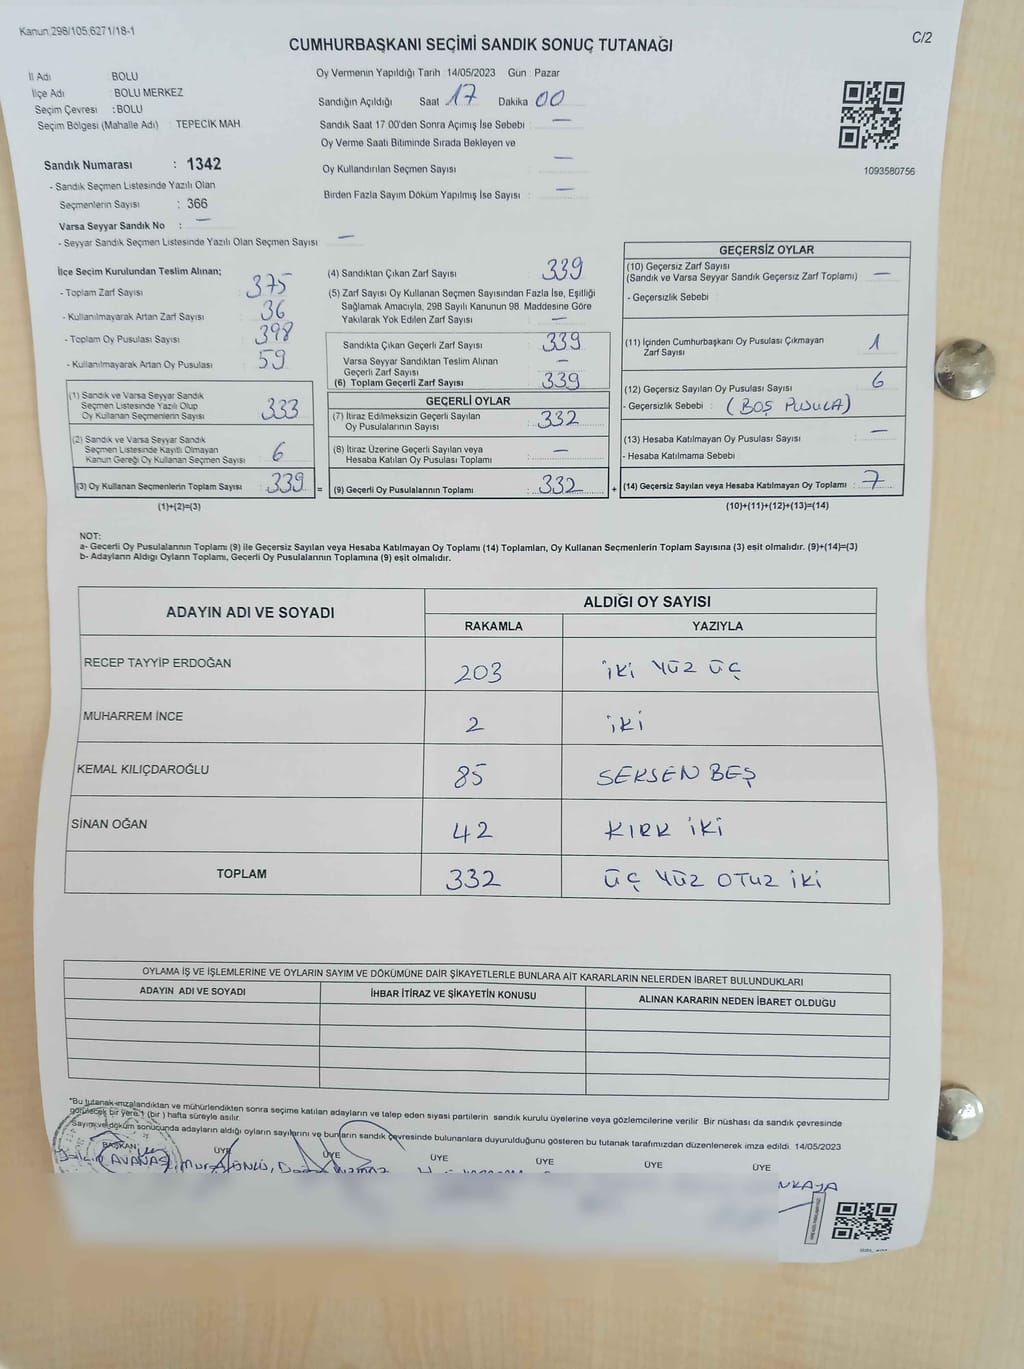 Kanun:298/105;6271/18-1
C/2
CUMHURBAŞKANI SEÇİMİ SANDIK SONUÇ TUTANAĞI
İl Adı : BOLU
İlçe Adı : BOLU MERKEZ
Seçim Çevresi : BOLU
Seçim Bölgesi (Mahalle Adı) : TEPECİK MAH.
Oy Vermenin Yapıldığı Tarih : 14/05/2023 Gün : Pazar
Sandığın Açıldığı Saat 17 Dakika 00
Sandık Saat 17:00'den Sonra Açımış İse Sebebi : —
Oy Verme Saati Bitiminde Sırada Bekleyen ve
Oy Kullandırılan Seçmen Sayısı : —
Birden Fazla Sayım Döküm Yapılmış İse Sayısı : —
1093580756
Sandık Numarası : 1342
- Sandık Seçmen Listesinde Yazılı Olan
Seçmenlerin Sayısı : 366
Varsa Seyyar Sandık No : —
- Seyyar Sandık Seçmen Listesinde Yazılı Olan Seçmen Sayısı : —
İlçe Seçim Kurulundan Teslim Alınan;
- Toplam Zarf Sayısı : 375
- Kullanılmayarak Artan Zarf Sayısı : 36
- Toplam Oy Pusulası Sayısı : 398
- Kullanılmayarak Artan Oy Pusulası : 59
(1) Sandık ve Varsa Seyyar Sandık
Seçmen Listesinde Yazılı Olup
Oy Kullanan Seçmenlerin Sayısı : 333
(2) Sandık ve Varsa Seyyar Sandık
Seçmen Listesinde Kayıtlı Olmayan
Kanun Gereği Oy Kullanan Seçmen Sayısı : 6
(3) Oy Kullanan Seçmenlerin Toplam Sayısı : 339 =
(1)+(2)=(3)
(4) Sandıktan Çıkan Zarf Sayısı : 339
(5) Zarf Sayısı Oy Kullanan Seçmen Sayısından Fazla İse, Eşitliği
Sağlamak Amacıyla, 298 Sayılı Kanunun 98. Maddesine Göre
Yakılarak Yok Edilen Zarf Sayısı : —
Sandıkta Çıkan Geçerli Zarf Sayısı : 339
Varsa Seyyar Sandıktan Teslim Alınan
Geçerli Zarf Sayısı : —
(6) Toplam Geçerli Zarf Sayısı : 339
GEÇERLİ OYLAR
(7) İtiraz Edilmeksizin Geçerli Sayılan
Oy Pusulalarının Sayısı : 332
(8) İtiraz Üzerine Geçerli Sayılan veya
Hesaba Katılan Oy Pusulası Toplamı : —
(9) Geçerli Oy Pusulalarının Toplamı : 332 +
GEÇERSİZ OYLAR
(10) Geçersiz Zarf Sayısı
(Sandık ve Varsa Seyyar Sandık Geçersiz Zarf Toplamı) : —
- Geçersizlik Sebebi :
(11) İçinden Cumhurbaşkanı Oy Pusulası Çıkmayan
Zarf Sayısı : 1
(12) Geçersiz Sayılan Oy Pusulası Sayısı : 6
- Geçersizlik Sebebi : (BOŞ PUSULA)
(13) Hesaba Katılmayan Oy Pusulası Sayısı : —
- Hesaba Katılmama Sebebi :
(14) Geçersiz Sayılan veya Hesaba Katılmayan Oy Toplamı : 7
(10)+(11)+(12)+(13)=(14)
NOT:
a- Geçerli Oy Pusulalarının Toplamı (9) ile Geçersiz Sayılan veya Hesaba Katılmayan Oy Toplamı (14) Toplamları, Oy Kullanan Seçmenlerin Toplam Sayısına (3) eşit olmalıdır. (9)+(14)=(3)
b- Adayların Aldığı Oyların Toplamı, Geçerli Oy Pusulalarının Toplamına (9) eşit olmalıdır.
ADAYIN ADI VE SOYADI ALDIĞI OY SAYISI
RAKAMLA YAZIYLA
RECEP TAYYİP ERDOĞAN 203 İKİ YÜZ ÜÇ
MUHARREM İNCE 2 İKİ
KEMAL KILIÇDAROĞLU 85 SEKSEN BEŞ
SİNAN OĞAN 42 KIRK İKİ
TOPLAM 332 ÜÇ YÜZ OTUZ İKİ
OYLAMA İŞ VE İŞLEMLERİNE VE OYLARIN SAYIM VE DÖKÜMÜNE DAİR ŞİKAYETLERLE BUNLARA AİT KARARLARIN NELERDEN İBARET BULUNDUKLARI
ADAYIN ADI VE SOYADI İHBAR İTİRAZ VE ŞİKAYETİN KONUSU ALINAN KARARIN NEDEN İBARET OLDUĞU
*Bu tutanak imzalandıktan ve mühürlendikten sonra seçime katılan adayların ve talep eden siyasi partilerin sandık kurulu üyelerine veya gözlemcilerine verilir. Bir nüshası da sandık çevresinde
görülecek bir yere 1 (bir) hafta süreyle asılır.
Sayım ve döküm sonucunda adayların aldığı oyların sayılarını ve bunların sandık çevresinde bulunanlara duyurulduğunu gösteren bu tutanak tarafımızdan düzenlenerek imza edildi. 14/05/2023
BAŞKAN ÜYE ÜYE ÜYE ÜYE ÜYE ÜYE